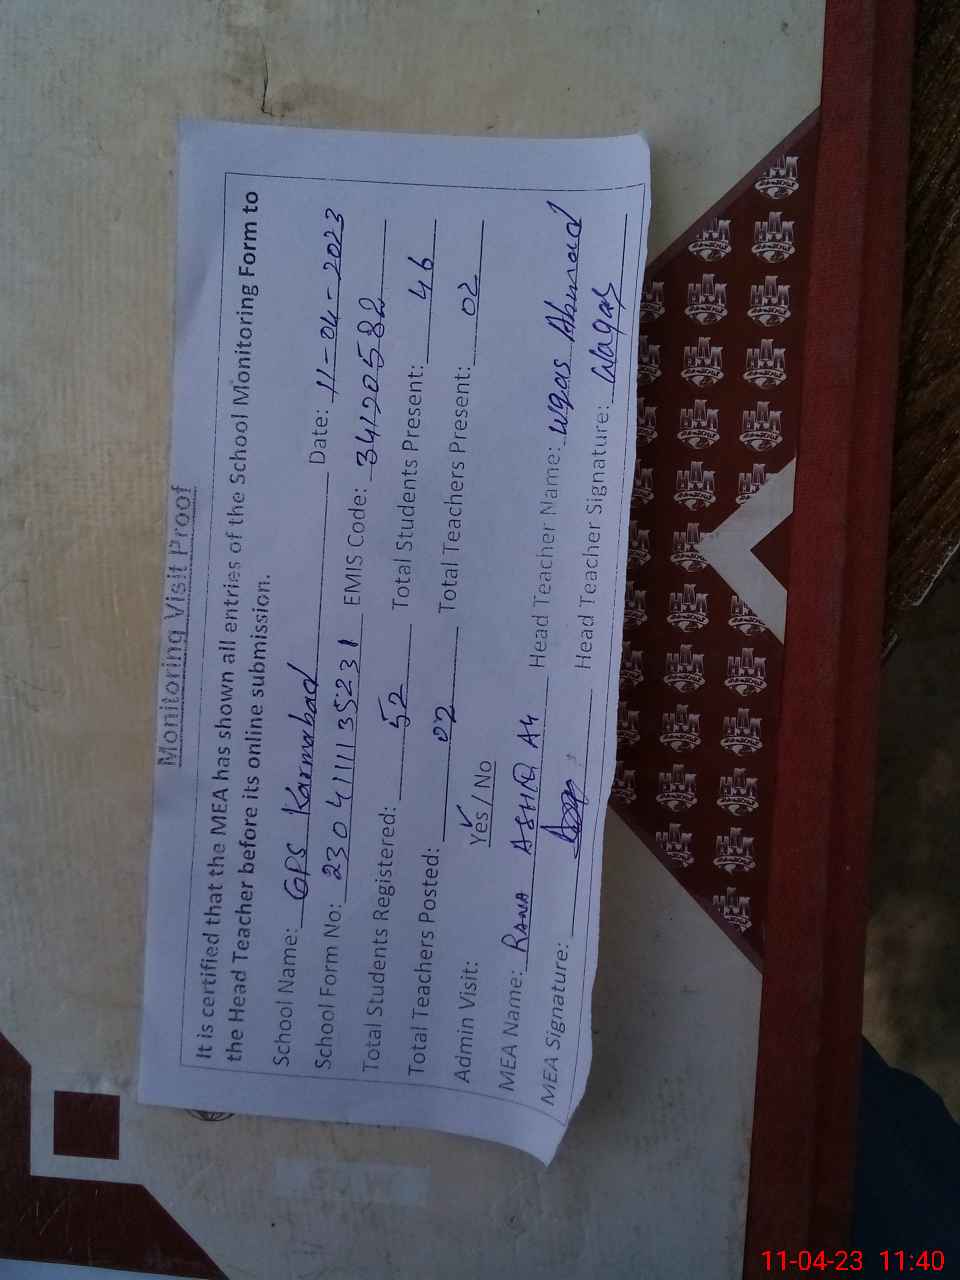 Monitoring Visit Proof
It is certified that the MEA has shown all entries of the School Monitoring Form to
the Head Teacher before its online submission.
School Name: GPS Karmabad Date: 11-04-2023
School Form No: 230411135231 EMIS Code: 34120582
Total Students Registered: 52 Total Students Present: 46
Total Teachers Posted: 02 Total Teachers Present: 02
Admin Visit: Yes / No
MEA Name: RANA Head Teacher Name: Wqas Ahmad
MEA Signature: Head Teacher Signature: Waqas
11-04-23 11:40